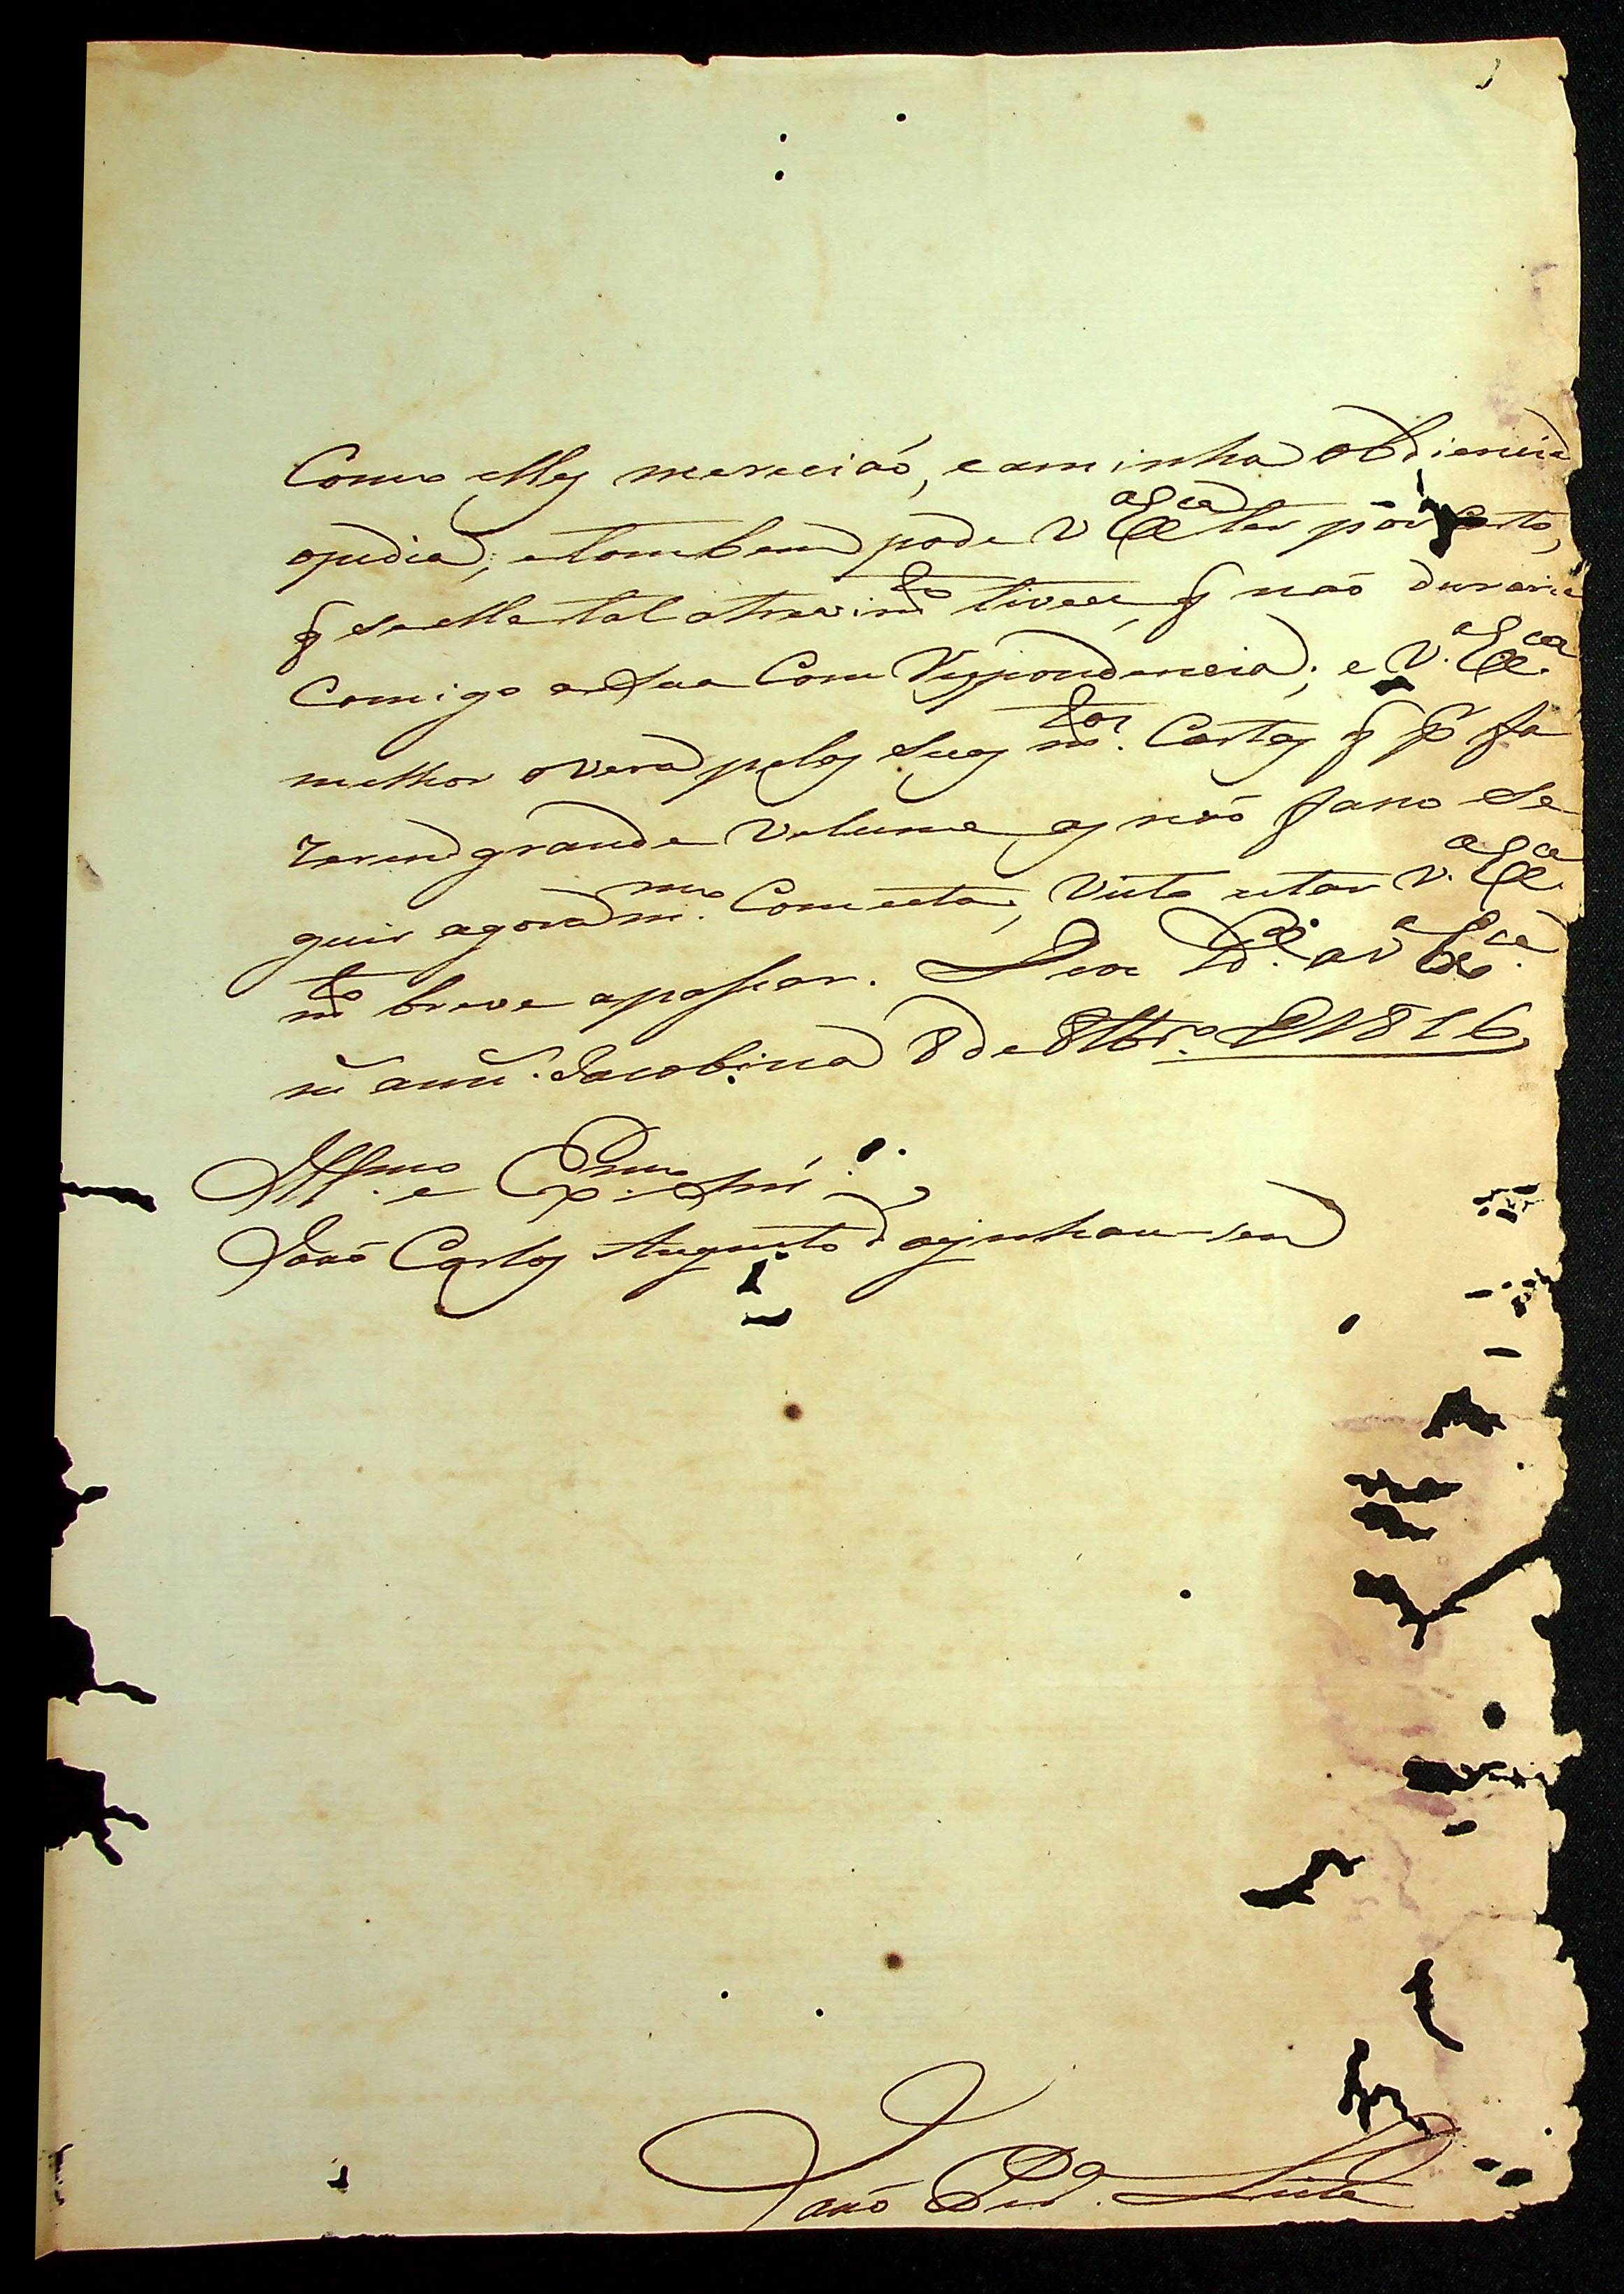 Como elles mereciaõ, e aminha obdiencia
opedia; etambem pode V Exª ter por certo,
q̃ se elle tal atrevimto tivece, q̃ naõ duraria
Comigo asua Comrrespondencia; e V. Exca
melhor overá pelas suas mtas Cartas q̃ pr fa
zerem grande Volume, as naõ faco se
guir agora mmo Com esta, Visto estar V. Exca
mto breve apassar. Deos Gde. a V Exca
ms anns. Jacobina 8 de 8tbro. D1816
Illmo. e Exmo. Snr
Joaõ Carlos Augusto d'Oeynhau-sen
Joaõ Pera. Leite